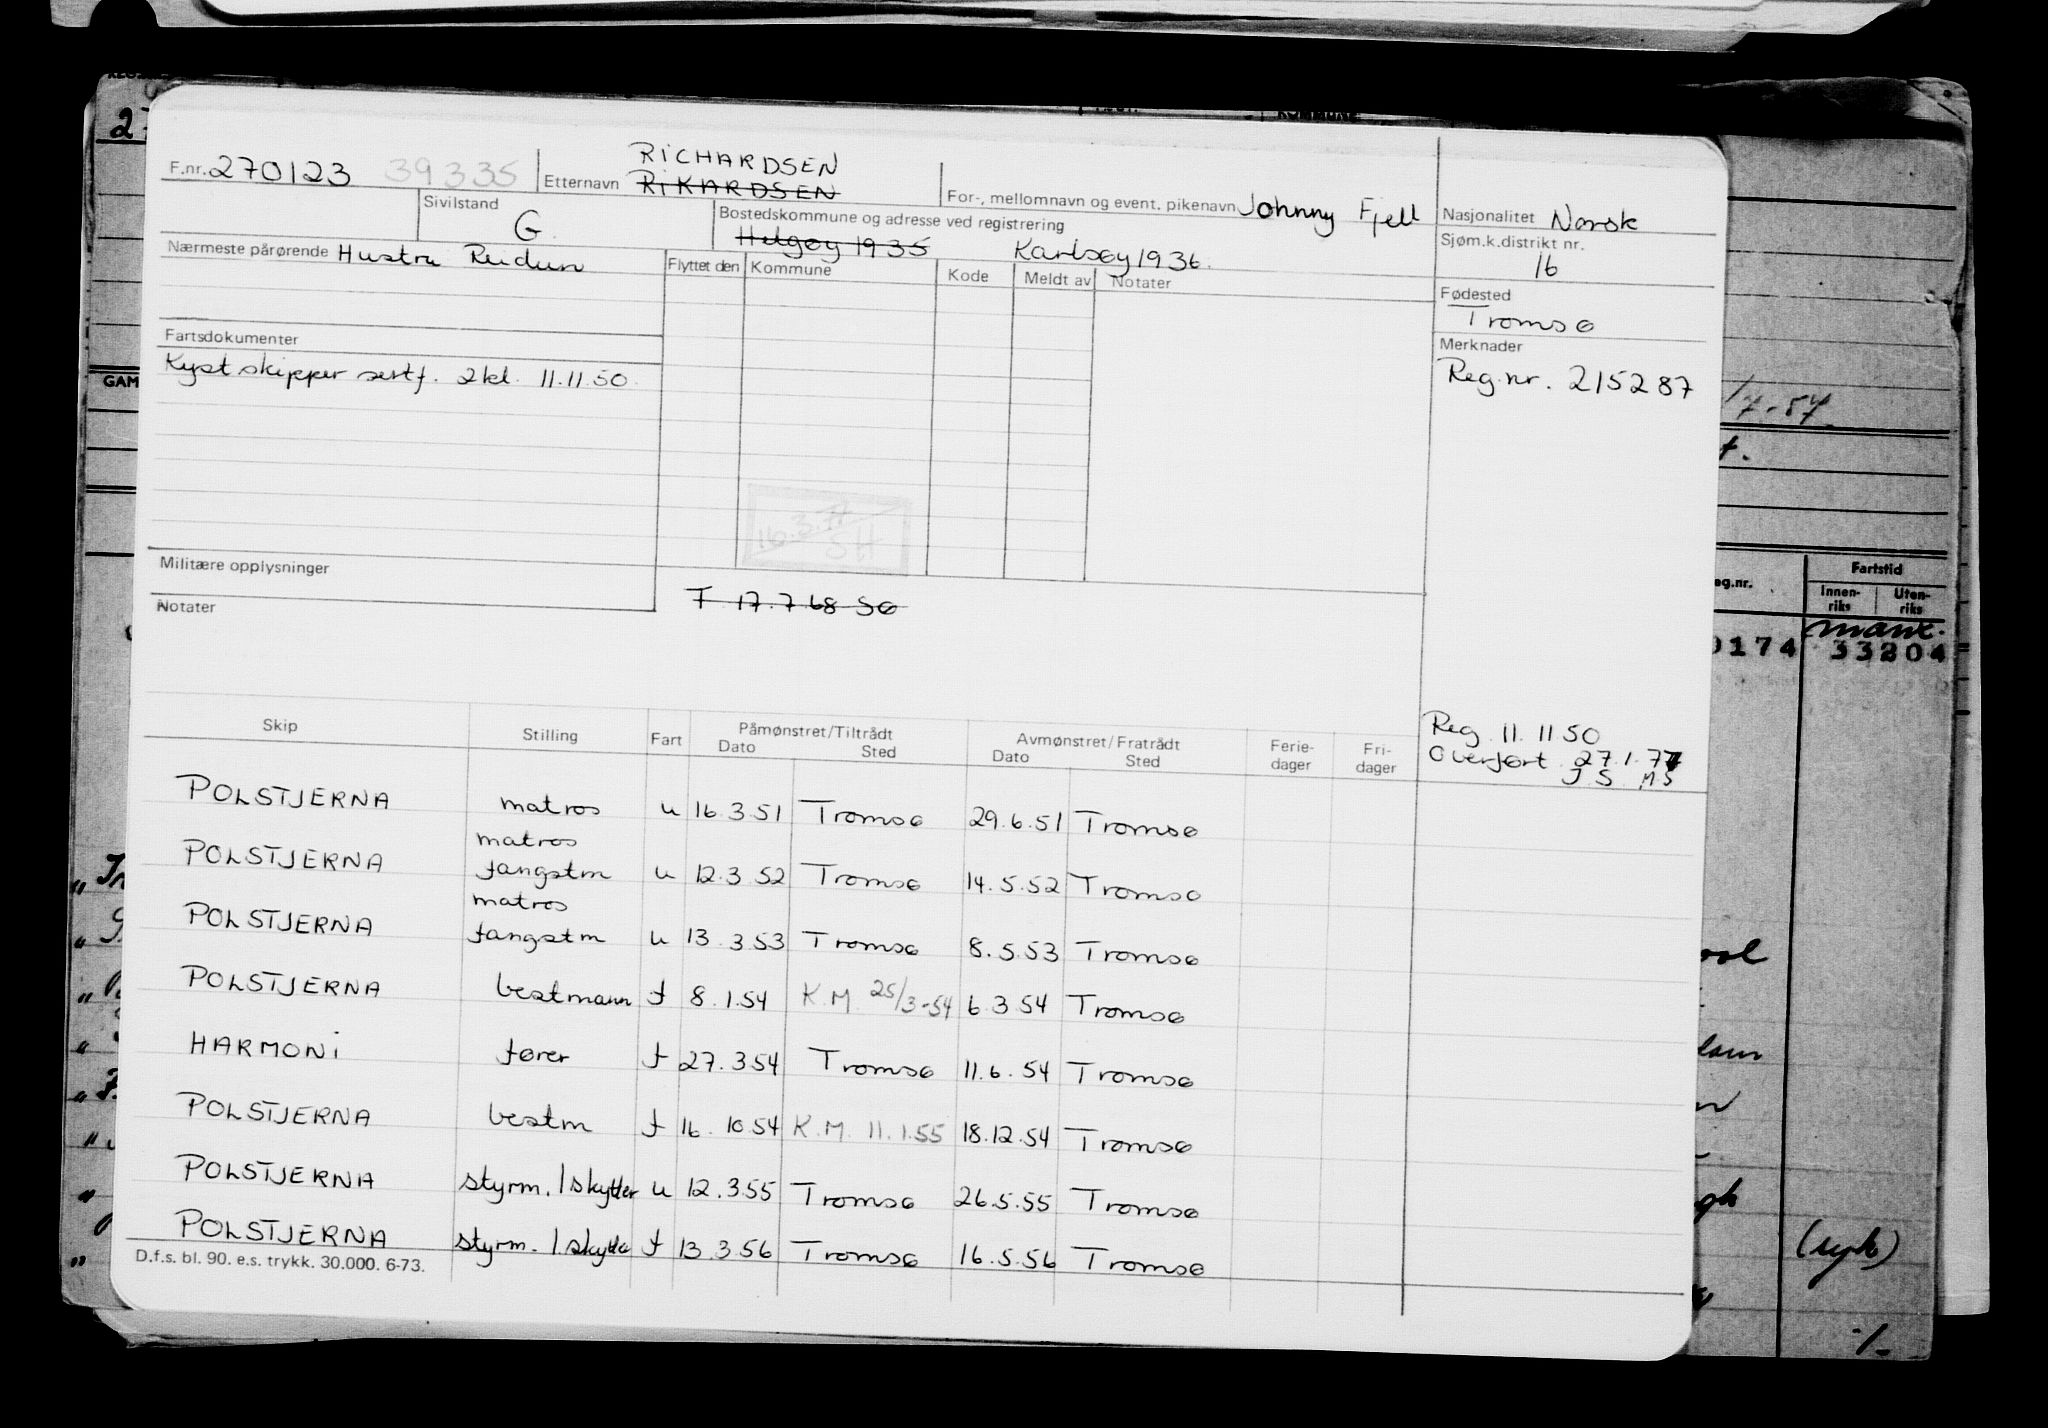 RICHARDSEN
F.nr. 270123 39335 Etternavn RIKARDSEN For-, mellomnavn og event. pikenavn Johnny Fjell Nasjonalitet Norsk
Sivilstand G. Bostedskommune og adresse ved registrering Sjøm.k.distrikt nr. 16
Helgøy 1935 Karlsøy 1936.
Nærmeste pårørende Hustru Reidun Flyttet den Kommune Kode Meldt av Notater
Fødested
Tromsø
Fartsdokumenter
Kystskipper sertf. 2 kl. 11.11.50.
Merknader
Reg.nr. 215287
16.3.77
SH
Militære opplysninger
F 17.7.68 SØ
Notater
Reg. 11.11 50
Overført 27.1.77
J.S. M.S
Skip Stilling Fart Påmønstret/Tiltrådt Dato Sted Avmønstret/Fratrådt Dato Sted Ferie-dager Fri-dager
POLSTJERNA matros u 16.3.51 Tromsø 29.6.51 Tromsø
POLSTJERNA matros fangstm u 12.3.52 Tromsø 14.5.52 Tromsø
POLSTJERNA matros fangstm u 13.3.53 Tromsø 8.5.53 Tromsø
POLSTJERNA bestmann f 8.1.54 K.M. 25/3-54 6.3.54 Tromsø
HARMONI fører f 27.3.54 Tromsø 11.6.54 Tromsø
POLSTJERNA bestm f 16.10.54 K.M. 11.1.55 18.12.54 Tromsø
POLSTJERNA styrm./skytter u 12.3.55 Tromsø 26.5.55 Tromsø
POLSTJERNA styrm./skytte f 13.3.56 Tromsø 16.5.56 Tromsø
D.f.s. bl. 90. e.s. trykk. 30.000. 6-73.
GAM
/7-57.
eg.nr. Fartstid
Innen-riks Uten-riks
0174 33204